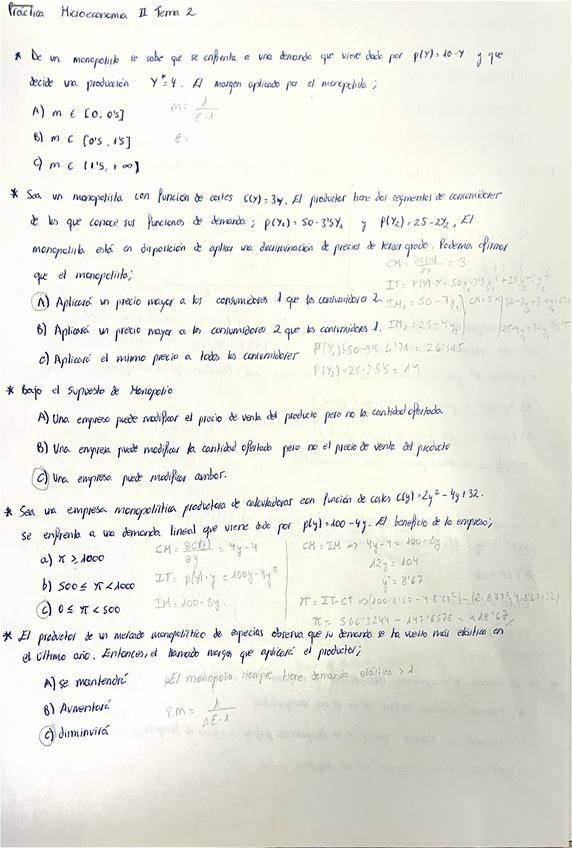 Práctica Microeconomía II Tema 2
* De un monopolista se sabe que se enfrenta a una demanda que viene dada por p(Y)=10-Y y que
decide una producción Y*=4. El margen aplicado por el monopolista;
A) m ∈ [0, 0'5] m = 1/(ε-1)
B) m ∈ [0'5, 1'5] ε =
C) m ∈ [1'5, +∞]
* Sea un monopolista con función de costes C(Y)=3y. El productor tiene dos segmentos de consumidores
de los que conoce sus funciones de demanda; p(Y₁)=50-3'5Y₁ y p(Y₂)=25-2Y₂. El
monopolista está en disposición de aplicar una discriminación de precios de tercer grado. Podemos afirmar
que el monopolista; CM = ∂C(Y)/∂y = 3
IT = P(Y)·Y = 50y₁-3'5y₁² + 25y₂-2y₂²
A) Aplicará un precio mayor a los consumidores 1 que los consumidores 2. IM₁ = 50-7y₁ CM=IM
B) Aplicará un precio mayor a los consumidores 2 que los consumidores 1. IM₂ = 25-4y₂
C) Aplicará el mismo precio a todos los consumidores P(Y₁)=50-3'5·6'71 = 26'515
P(Y₂)=25-2·5'5 = 14
* bajo el supuesto de Monopolio
A) Una empresa puede modificar el precio de venta del producto pero no la cantidad ofertada
B) Una empresa puede modificar la cantidad ofertada pero no el precio de venta del producto
C) Una empresa puede modificar ambos.
* Sea una empresa monopolística productora de calculadoras con función de costes C(y)=2y²-4y+32.
Se enfrenta a una demanda lineal que viene dada por p(y)=100-4y. El beneficio de la empresa;
a) π ≥ 1000 CM = ∂C(Y)/∂y = 4y-4 CM = IM => 4y-4 = 100-8y
12y = 104
b) 500 ≤ π < 1000 IT = p(y)·y = 100y-4y² y = 8'67
c) 0 ≤ π < 500 IM = 100-8y π = IT-CT => (100·8'67-4·8'67²)-(2·8'67²-4·8'67+32)
π = 566'3244-147'6578 = 418'67
* El productor de un mercado monopolítico de especias observa que su demanda se ha vuelto más elástica en
el último año. Entonces, el llamado margen que aplicará el productor;
A) se mantendrá El monopolio siempre tiene demanda elástica > 1
B) Aumentará ↓m = 1/(↑ε-1)
C) disminuirá